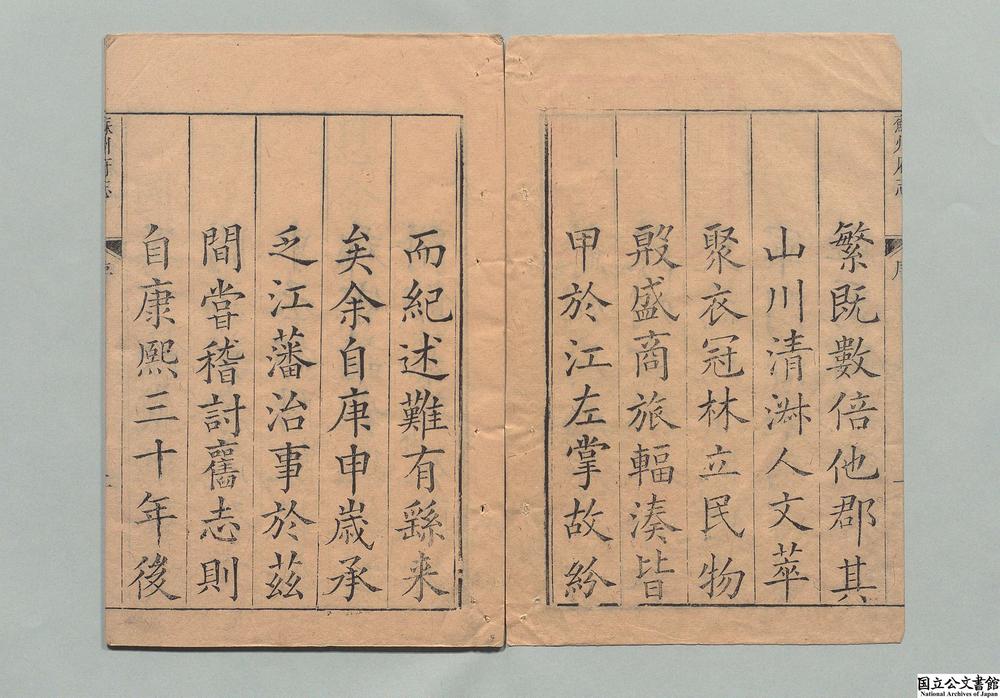 繁既數倍他郡其
山川清淋人文萃
聚衣冠林立民物
殷盛商旅輻湊皆
甲於江左掌故紛
而紀述難有繇来
矣余自庚申歳承
乏江藩治事於茲
間嘗稽討舊志則
自康熙三十年後
蘇州府志
序
蘇州府志
序
国立公文書館
National Archives of Japan